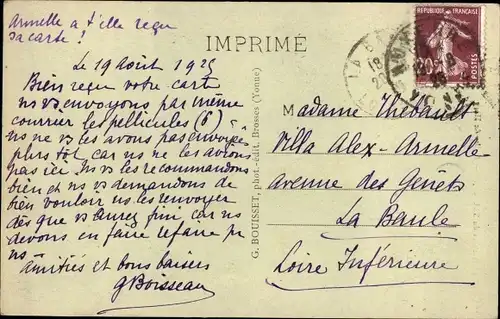 Armelle a t'elle reçu
sa carte !
Le 19 août 1925
Bien reçu votre carte
ns vs envoyons par même
courrier les pellicules (6)
ns ne vs les avons pas envoyées
plus tôt car ns ne les avions
pas ici. Ns vs les recommandons
bien et ns vs demandons de
bien vouloir ns les renvoyer
dès que vs aurez fini car ns
devons en faire refaire pr
ns
amitiés et bons baisers
G Boisseau
IMPRIMÉ
G. BOUISSET, phot.-édit. Brosses (Yonne)
REPUBLIQUE FRANÇAISE
20c
POSTES
Madame Thébault
Villa Alex-Armelle
avenue des Genêts
La Baule
Loire Inférieure